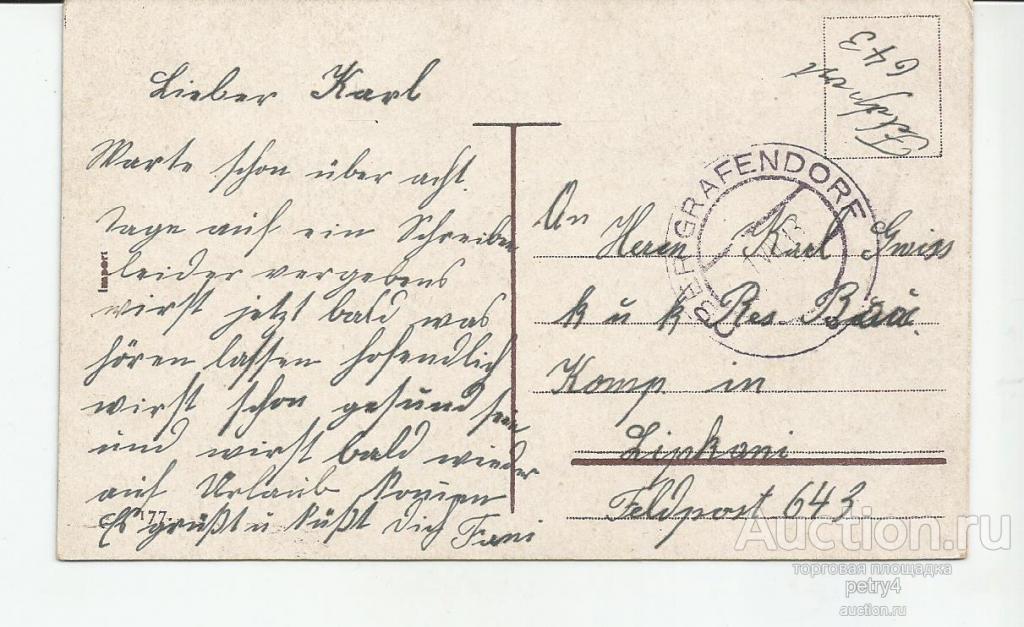 Lieber Karl
Warte schon über acht.
Tage auf ein Schreiben
leider vergebens
wirst jetzt bald was
hören lassen hofendlich
wirst schon gesund sein
und wirst bald wieder
auf Urlaub kommen
Es grüßt u küßt dich Fani
Import
177
Feldpost
643
GRAFENDORF
An Herrn Karl
k u k Res.
Komp in
Lipkani
Feldpost 643
Auction.ru
торговая площадка
petry4
auction.ru